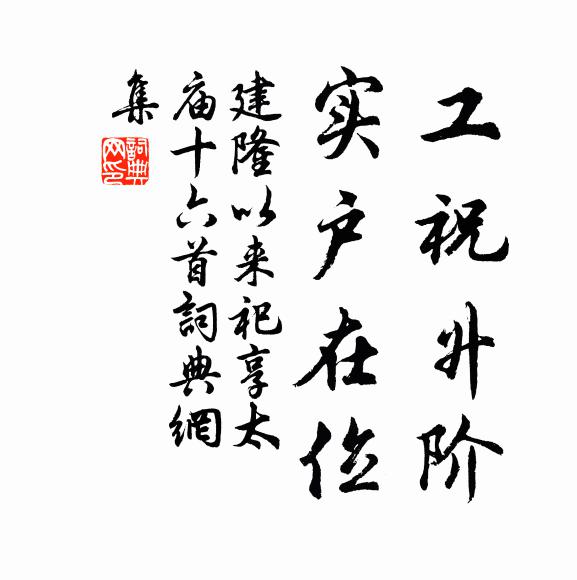 工祝升阶
实户在位
建隆以来祀享太
庙十六首詞典網
集
詞典
网印